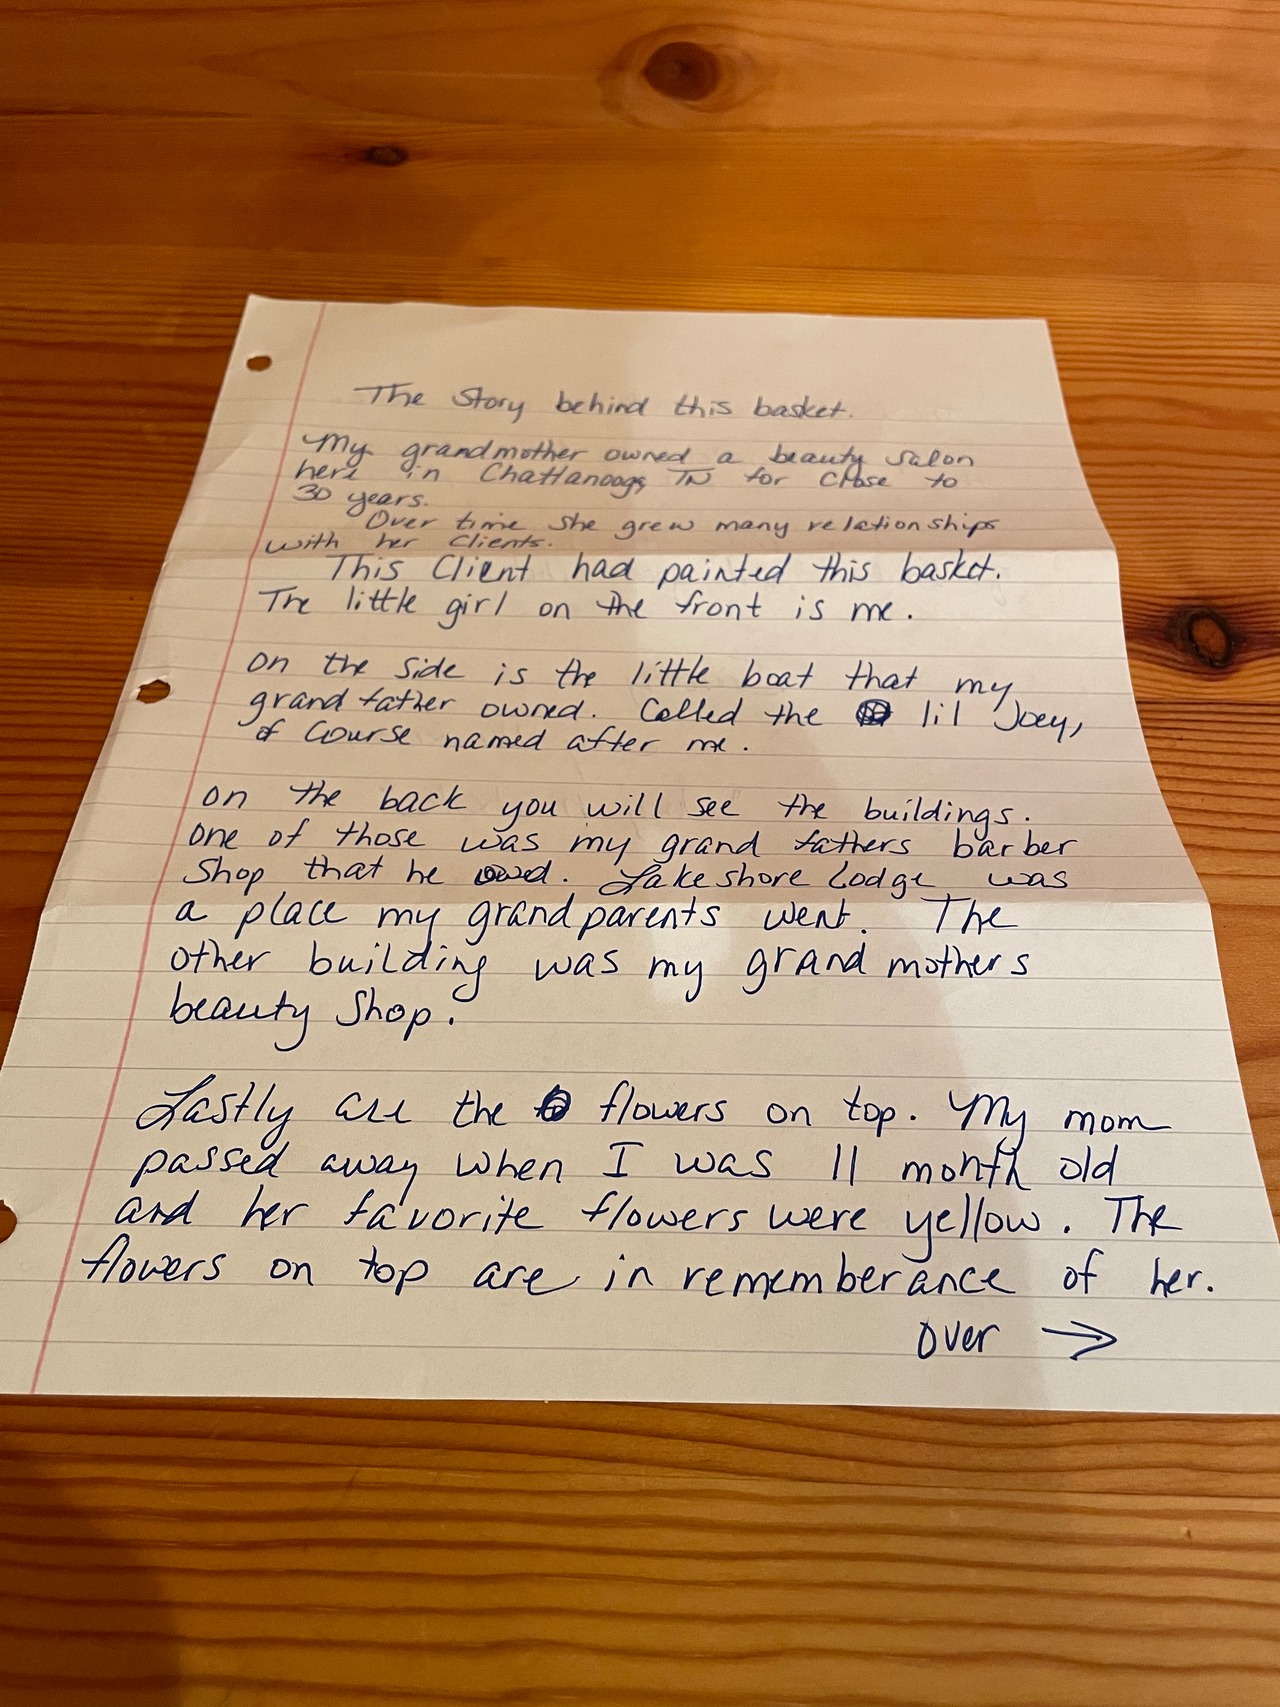 The Story behind this basket.
My grandmother owned a beauty salon
here in Chattanooga, TN for close to
30 years.
Over time she grew many relationships
with her clients.
This Client had painted this basket.
The little girl on the front is me.
on the side is the little boat that my
grandfather owned. Called the lil Joey,
of Course named after me.
on the back you will see the buildings.
one of those was my grand fathers barber
Shop that he owd. Lakeshore Lodge was
a place my grandparents went. The
other building was my grand mothers
beauty Shop.
Lastly are the flowers on top. My mom
passed away when I was 11 month old
and her favorite flowers were yellow. The
flowers on top are in rememberance of her.
over →